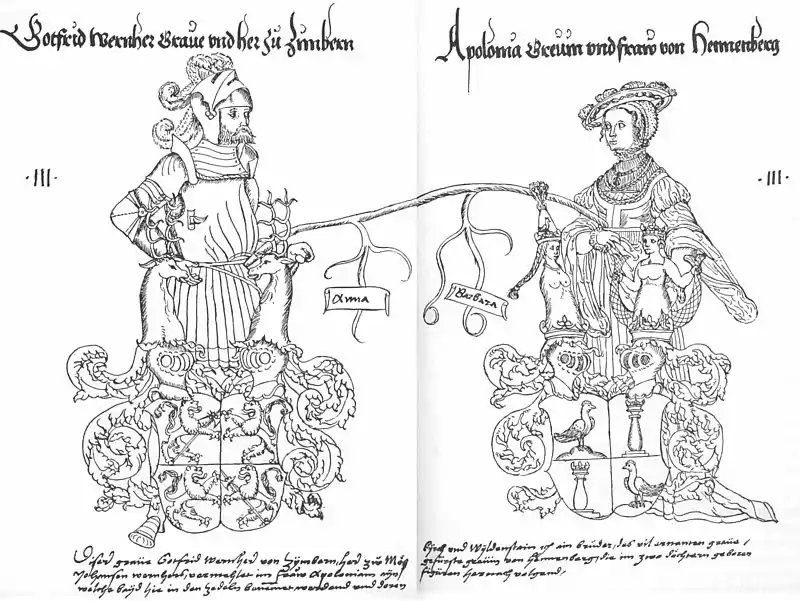 Gotfrid wernher Graue vnd her zu Zimbern
Apolonia Greuin vnd fraw von Hennenberg
·III·
·III·
Anna
Barbara
Diser graue Gotfrid wernher von Zymbern, her zu Mös
Johansen wernhers, vermehlet im fraw Apoloniam ayn
wölche bayd hie in den zedeln werdend vnd deren
kirch vnd Wyldenstain ist ain brüder, des vil ernanten graue,
gefürste greüin von Hennenberg, die im zwo döchtern geboren
figuren hernach volgend,